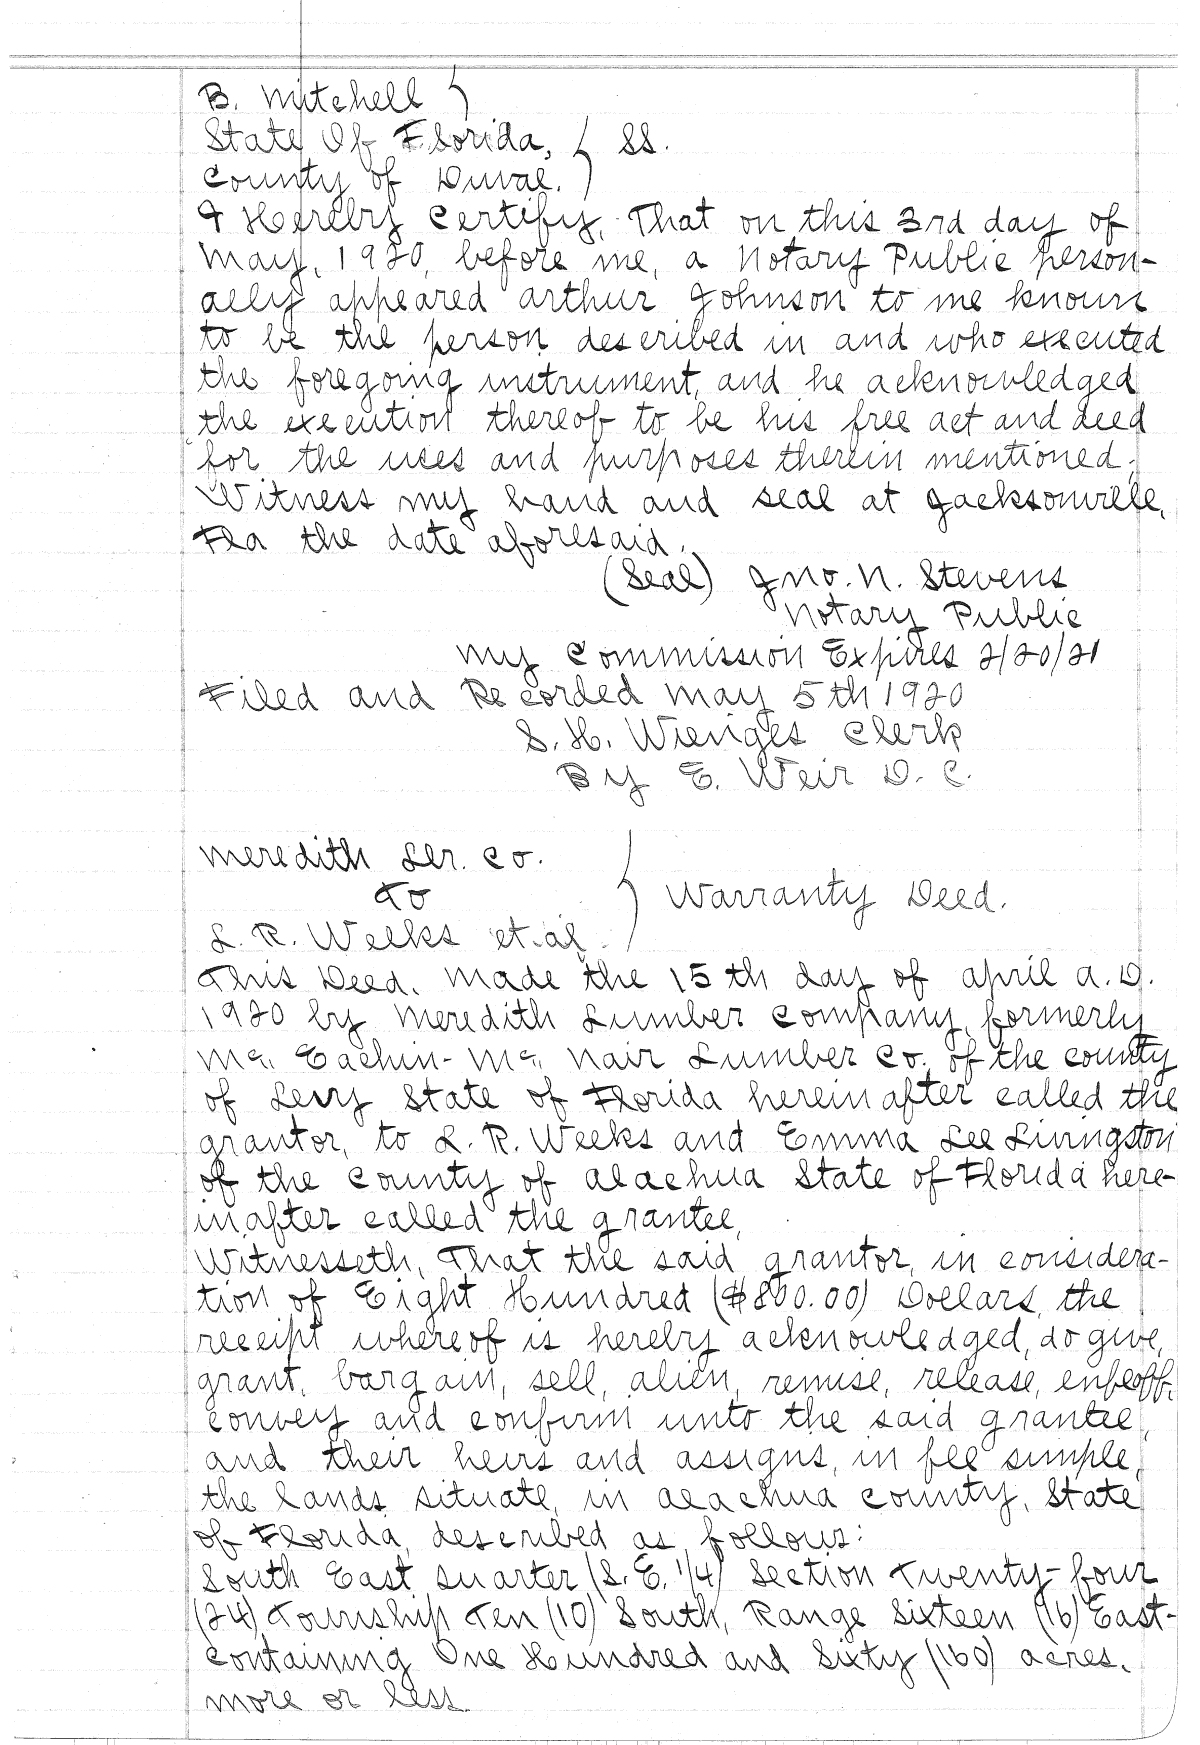 B. Mitchell }
State Of Florida, } SS.
County of Duval. }
I Hereby Certify, That on this 3rd day of
May, 1920, before me, a Notary Public person-
ally appeared Arthur Johnson to me known
to be the person described in and who executed
the foregoing instrument, and he acknowledged
the execution thereof to be his free act and deed
for the uses and purposes therein mentioned.
Witness my hand and seal at Jacksonville,
Fla the date aforesaid.
(Seal) Jno. N. Stevens
Notary Public
My Commission Expires 2/20/21
Filed and Recorded May 5th 1920
S. H. Wienges Clerk
By E. Weir D. C.
Meredith Lbr. Co.
To } Warranty Deed.
L. R. Weeks et.al.
This Deed, Made the 15th day of April A.D.
1920 by Meredith Lumber Company, formerly
Mc. Eachin-Mc. Nair Lumber Co. of the county
of Levy State of Florida hereinafter called the
grantor, to L. R. Weeks and Emma Lee Livingston
of the County of Alachua State of Florida here-
inafter called the grantee,
Witnesseth, That the said grantor, in considera-
tion of Eight Hundred ($800.00) Dollars, the
receipt whereof is hereby acknowledged, do give,
grant, bargain, sell, alien, remise, release, enfeoff,
convey and confirm unto the said grantee,
and their heirs and assigns, in fee simple,
the lands situate, in Alachua County, State
of Florida, described as follows:
South East Quarter (S.E. 1/4) Section Twenty-four
(24) Township Ten (10) South, Range Sixteen (16) East-
containing One Hundred and Sixty (160) acres,
more or less.